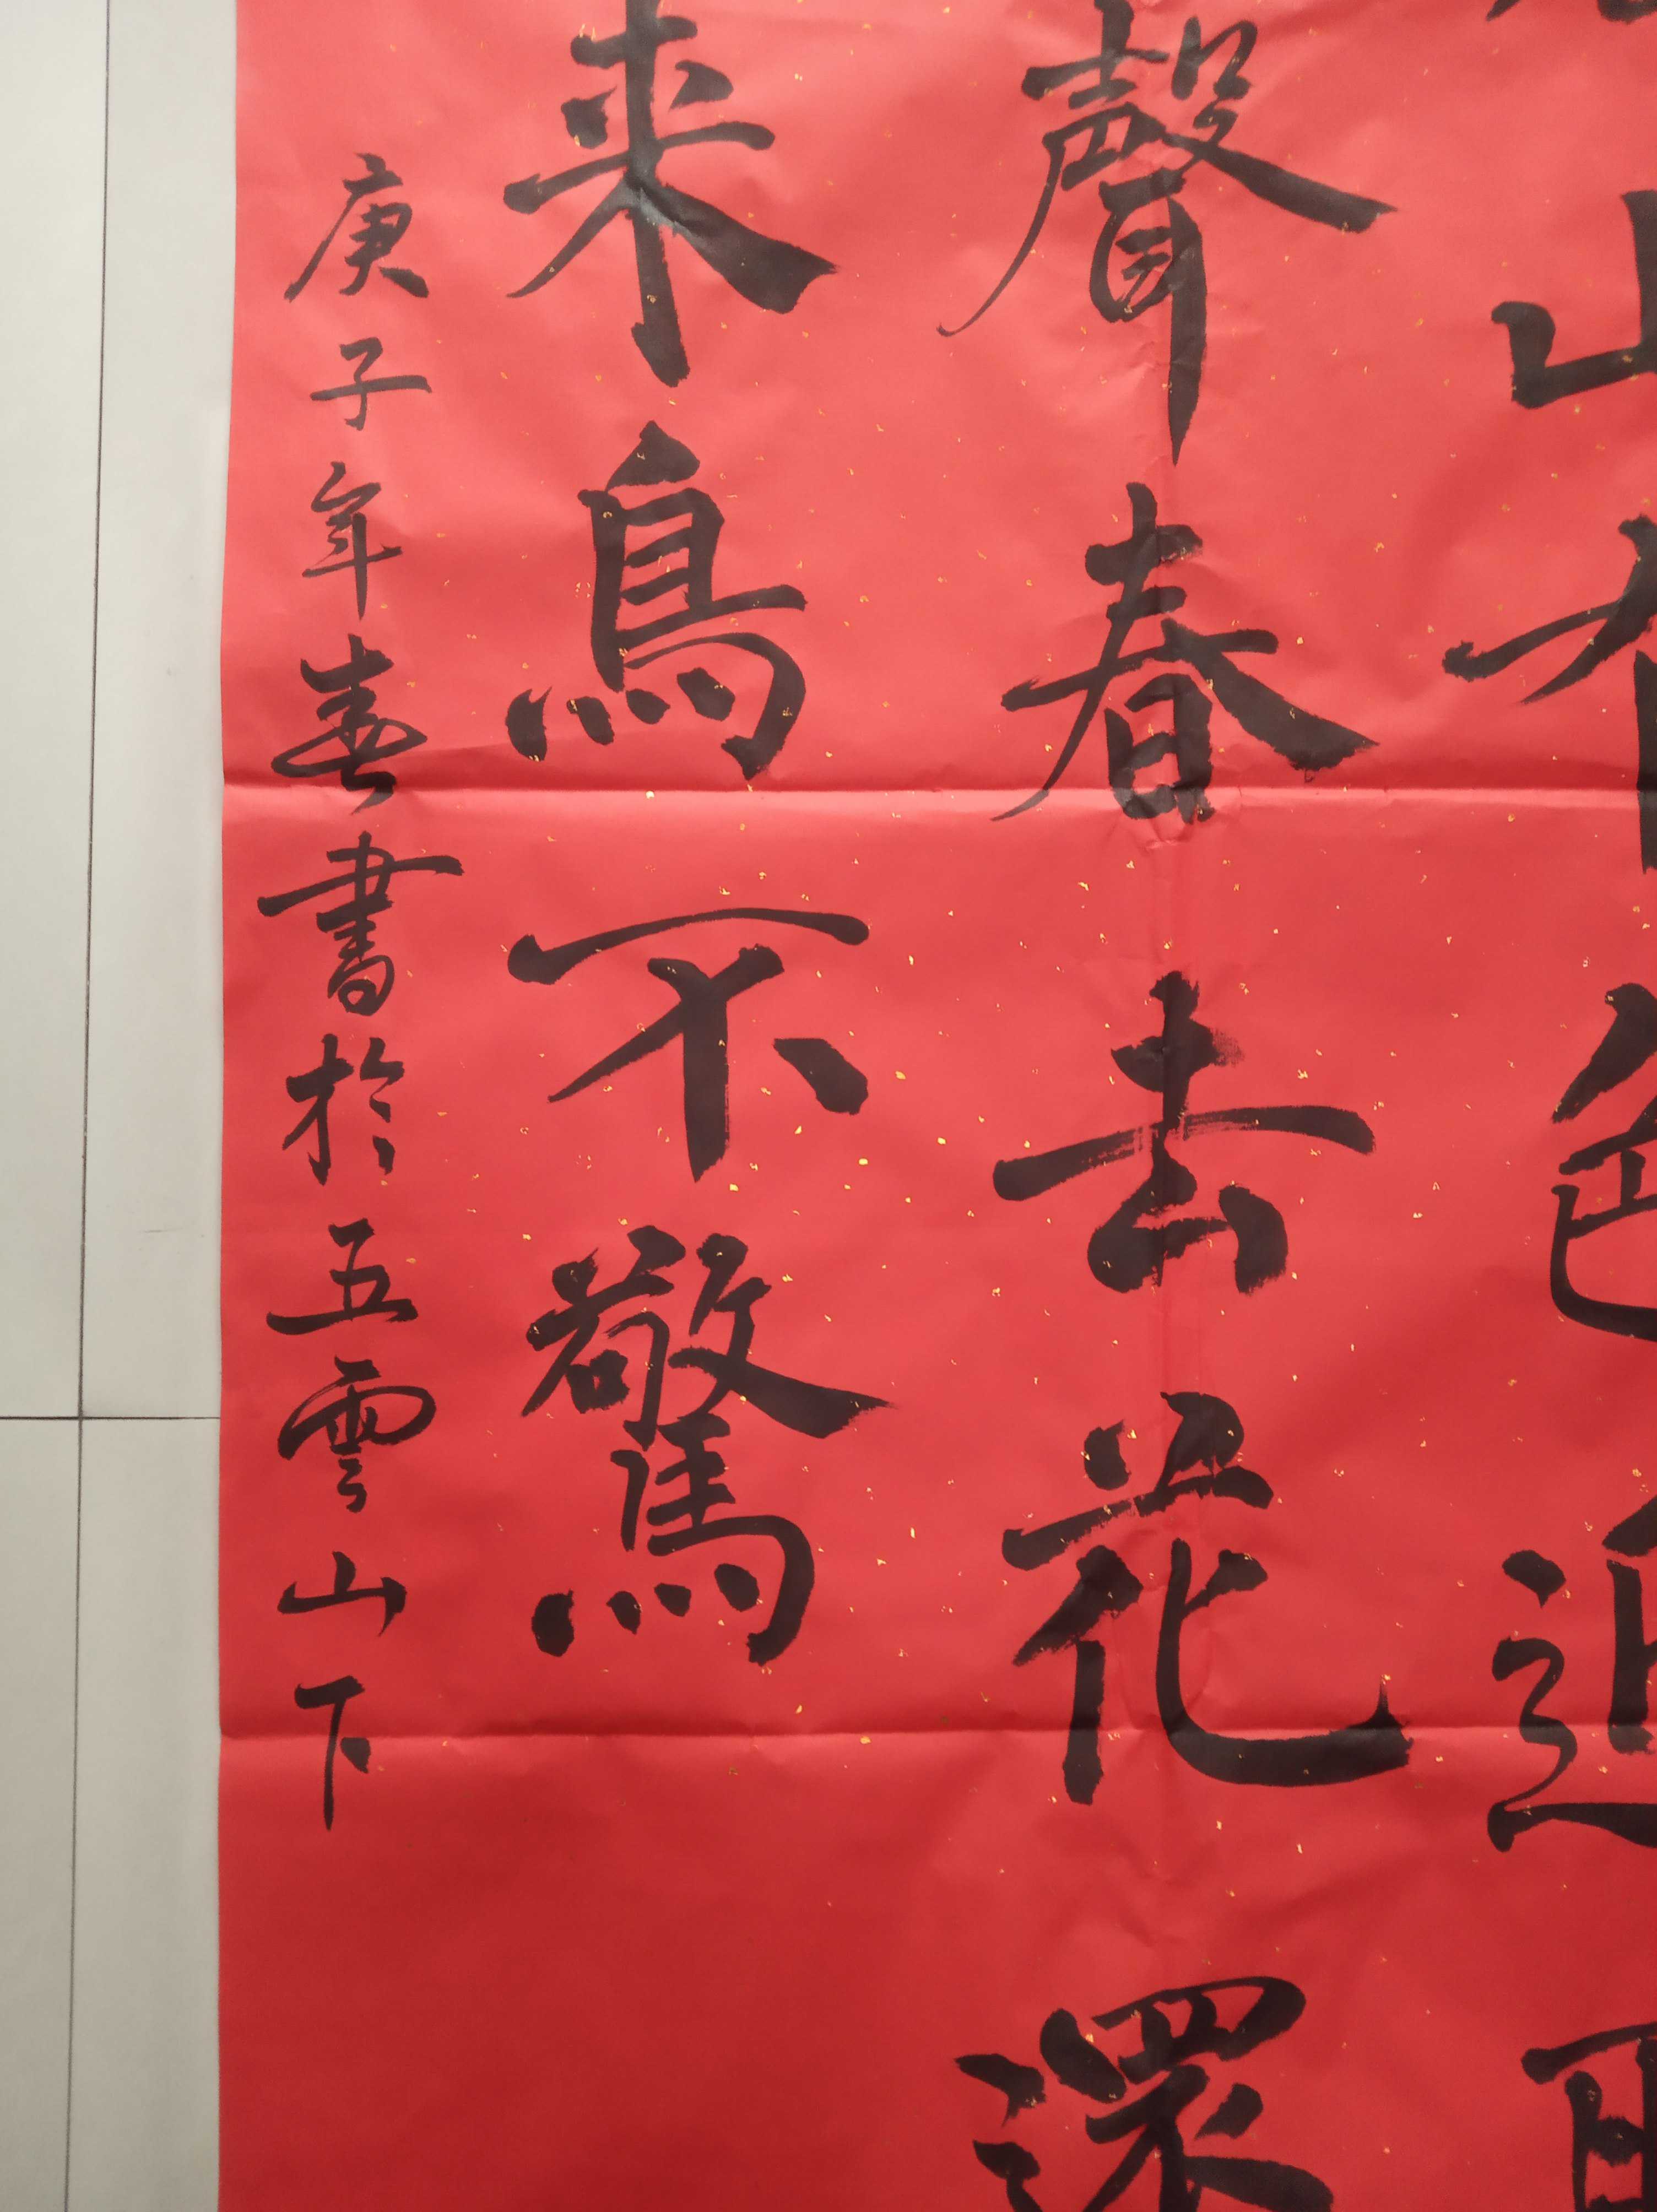 山有色近
聲春去花還
来鳥不驚
庚子年春書於五雲山下